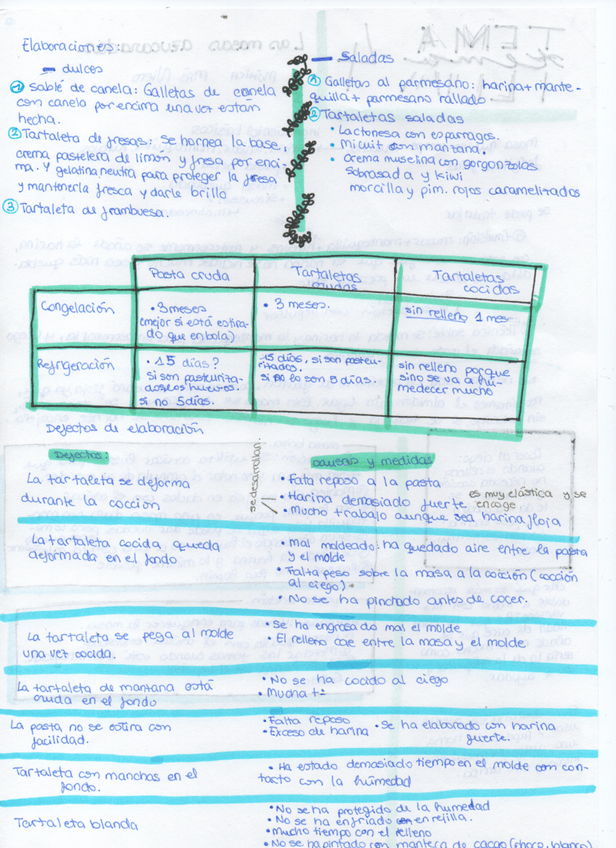 Elaboraciones:
- dulces
① Sablé de canela: Galletas de canela
con canela por encima una vez están
hecha.
② Tartaleta de fresas: se hornea la base,
crema pastelera de limón y fresa por enci-
ma. Y gelatina neutra para proteger la fresa
y mantenerla fresca y darle brillo
③ Tartaleta de frambuesa.
- Saladas
① Galletas al parmesano: harina + mante-
quilla + parmesano rallado
② Tartaletas saladas
• Lactonesa con esparragos.
• Micuit con manzana.
• Crema muselina con gorgonzolas
Sobrasada y kiwi
morcilla y pim. rojos caramelizados
Pasta cruda
Tartaletas
crudas
Tartaletas
cocidas
Congelación
• 3 meses
(mejor si está estira-
do que en bola)
• 3 meses.
sin relleno 1 mes
Refrigeración
• 15 días?
si son pasteuriza-
dos los huevos.
si no 5 días.
15 días, si son pasteu-
rizados.
si no lo son 5 días.
sin relleno porque
sino se va a hu-
medecer mucho
Defectos de elaboración
Defectos:
se desarrollan:
causas y medidas
La tartaleta se deforma
durante la cocción
• Fata reposo a la pasta
• Harina demasiado fuerte
es muy elástica y se
encoge
• Mucho trabajo aunque sea harina floja
La tartaleta cocida queda
deformada en el fondo
• Mal moldeado: ha quedado aire entre la pasta
y el molde
• Falta peso sobre la masa a la cocción (cocción
al ciego)
• No se ha pinchado antes de cocer.
La tartaleta se pega al molde
una vez cocida.
• Se ha engrasado mal el molde
• El relleno cae entre la masa y el molde
La tartaleta de manzana está
cruda en el fondo
• No se ha cocido al ciego
• Mucha tª
La pasta no se estira con
facilidad.
• Falta reposo
• Exceso de harina
• Se ha elaborado con harina
fuerte.
Tartaleta con manchas en el
fondo.
• Ha estado demasiado tiempo en el molde con con-
tacto con la humedad
Tartaleta blanda
• No se ha protegido de la humedad
• No se ha enfriado en rejilla.
• Mucho tiempo con el relleno
• No se ha pintado con manteca de cacao (choco. blanco)